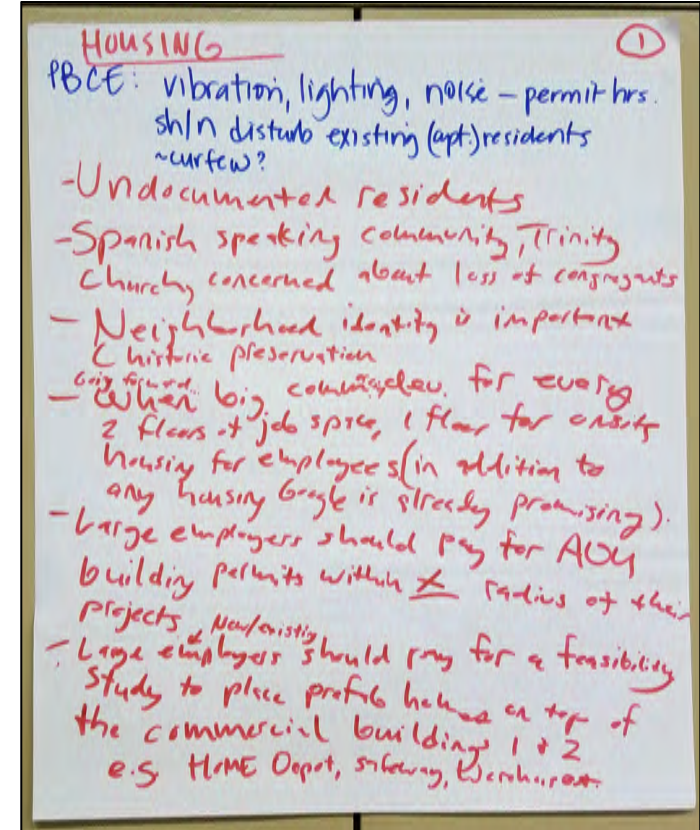 HOUSING ①
PBCE: vibration, lighting, noise – permit hrs.
sh/n disturb existing (apt.) residents
~curfew?
-Undocumented residents
-Spanish speaking community, Trinity
Church, concerned about loss of congregants
- Neighborhood identity is important
( historic preservation
Going forward..
- When big comm. dev. for every
2 floors of job space, 1 floor for onsite
housing for employees (in addition to
any housing Google is already promising).
- Large employers should pay for ADU
building permits within X radius of their
projects
& New/existing
- Large employers should pay for a feasibility
study to place prefab homes on top of
the commercial buildings 1 + 2
e.g. HOME Depot, Safeway,